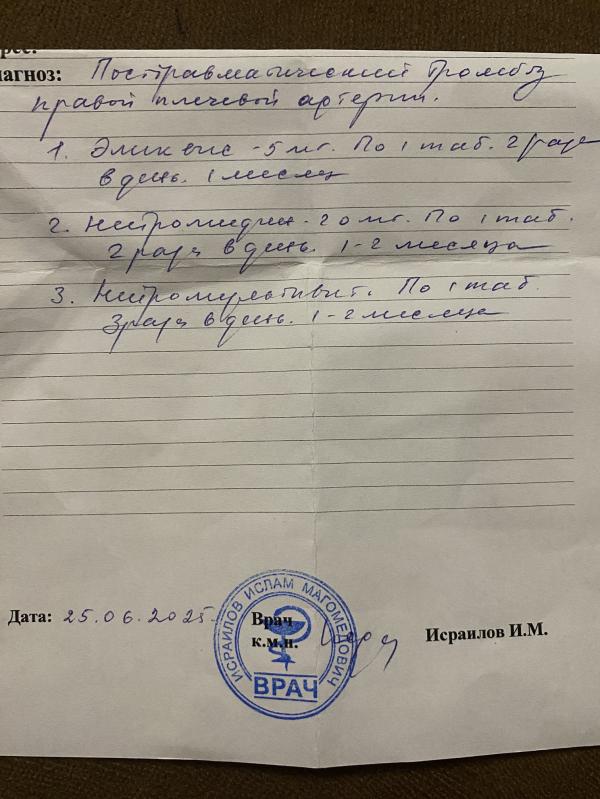 рес:
иагноз: Посттравматический тромбоз
правой плечевой артерии.
1. Эликвис - 5 мг. По 1 таб. 2 раза
в день. 1 месяц
2. Нейромидин - 20 мг. По 1 таб.
2 раза в день. 1-2 месяца
3. Нейромультивит. По 1 таб.
3 раза в день. 1-2 месяца
Дата: 25.06.2025
Врач
к.м.н.
Исраилов И.М.
ИСРАИЛОВ ИСЛАМ МАГОМЕДОВИЧ
ВРАЧ